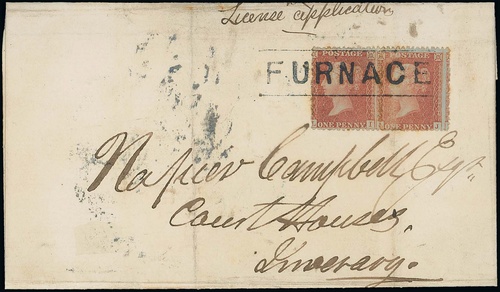 License application
POSTAGE POSTAGE
FURNACE
ONE PENNY ONE PENNY
Napier Campbell Esqr.
Court Houses,
Inverary.